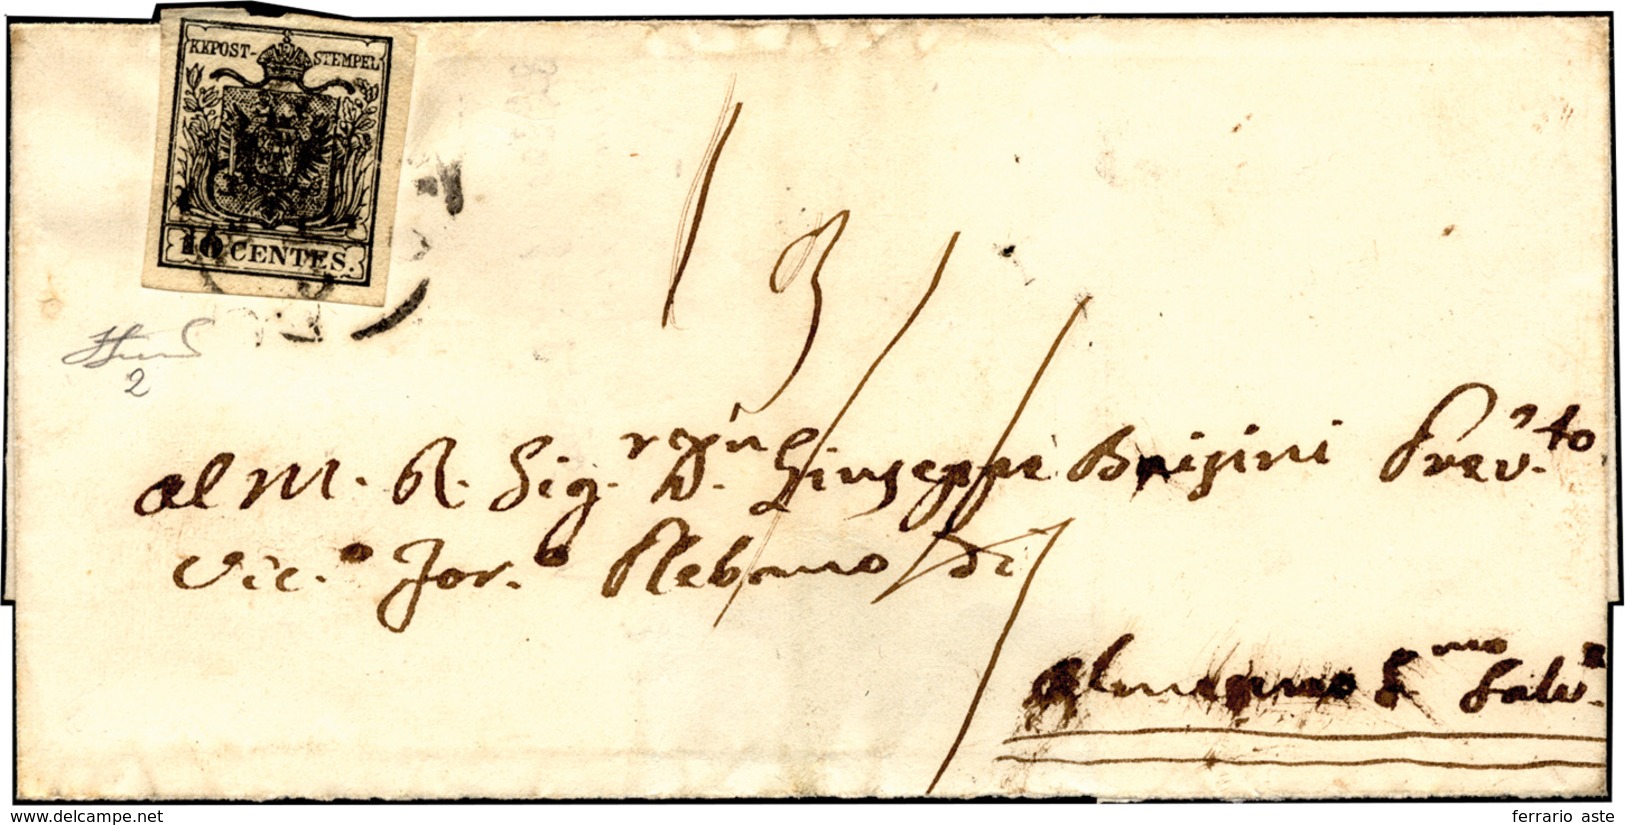 KKPOST-STEMPEL
10 CENTES.
13
2
Al M. R. Sig.r D.n Giuseppe Brisini Prev.to
Vic.o For.o Plebano di
Almenno S.mo Salv.e
www.delcampe.net
ferrario aste